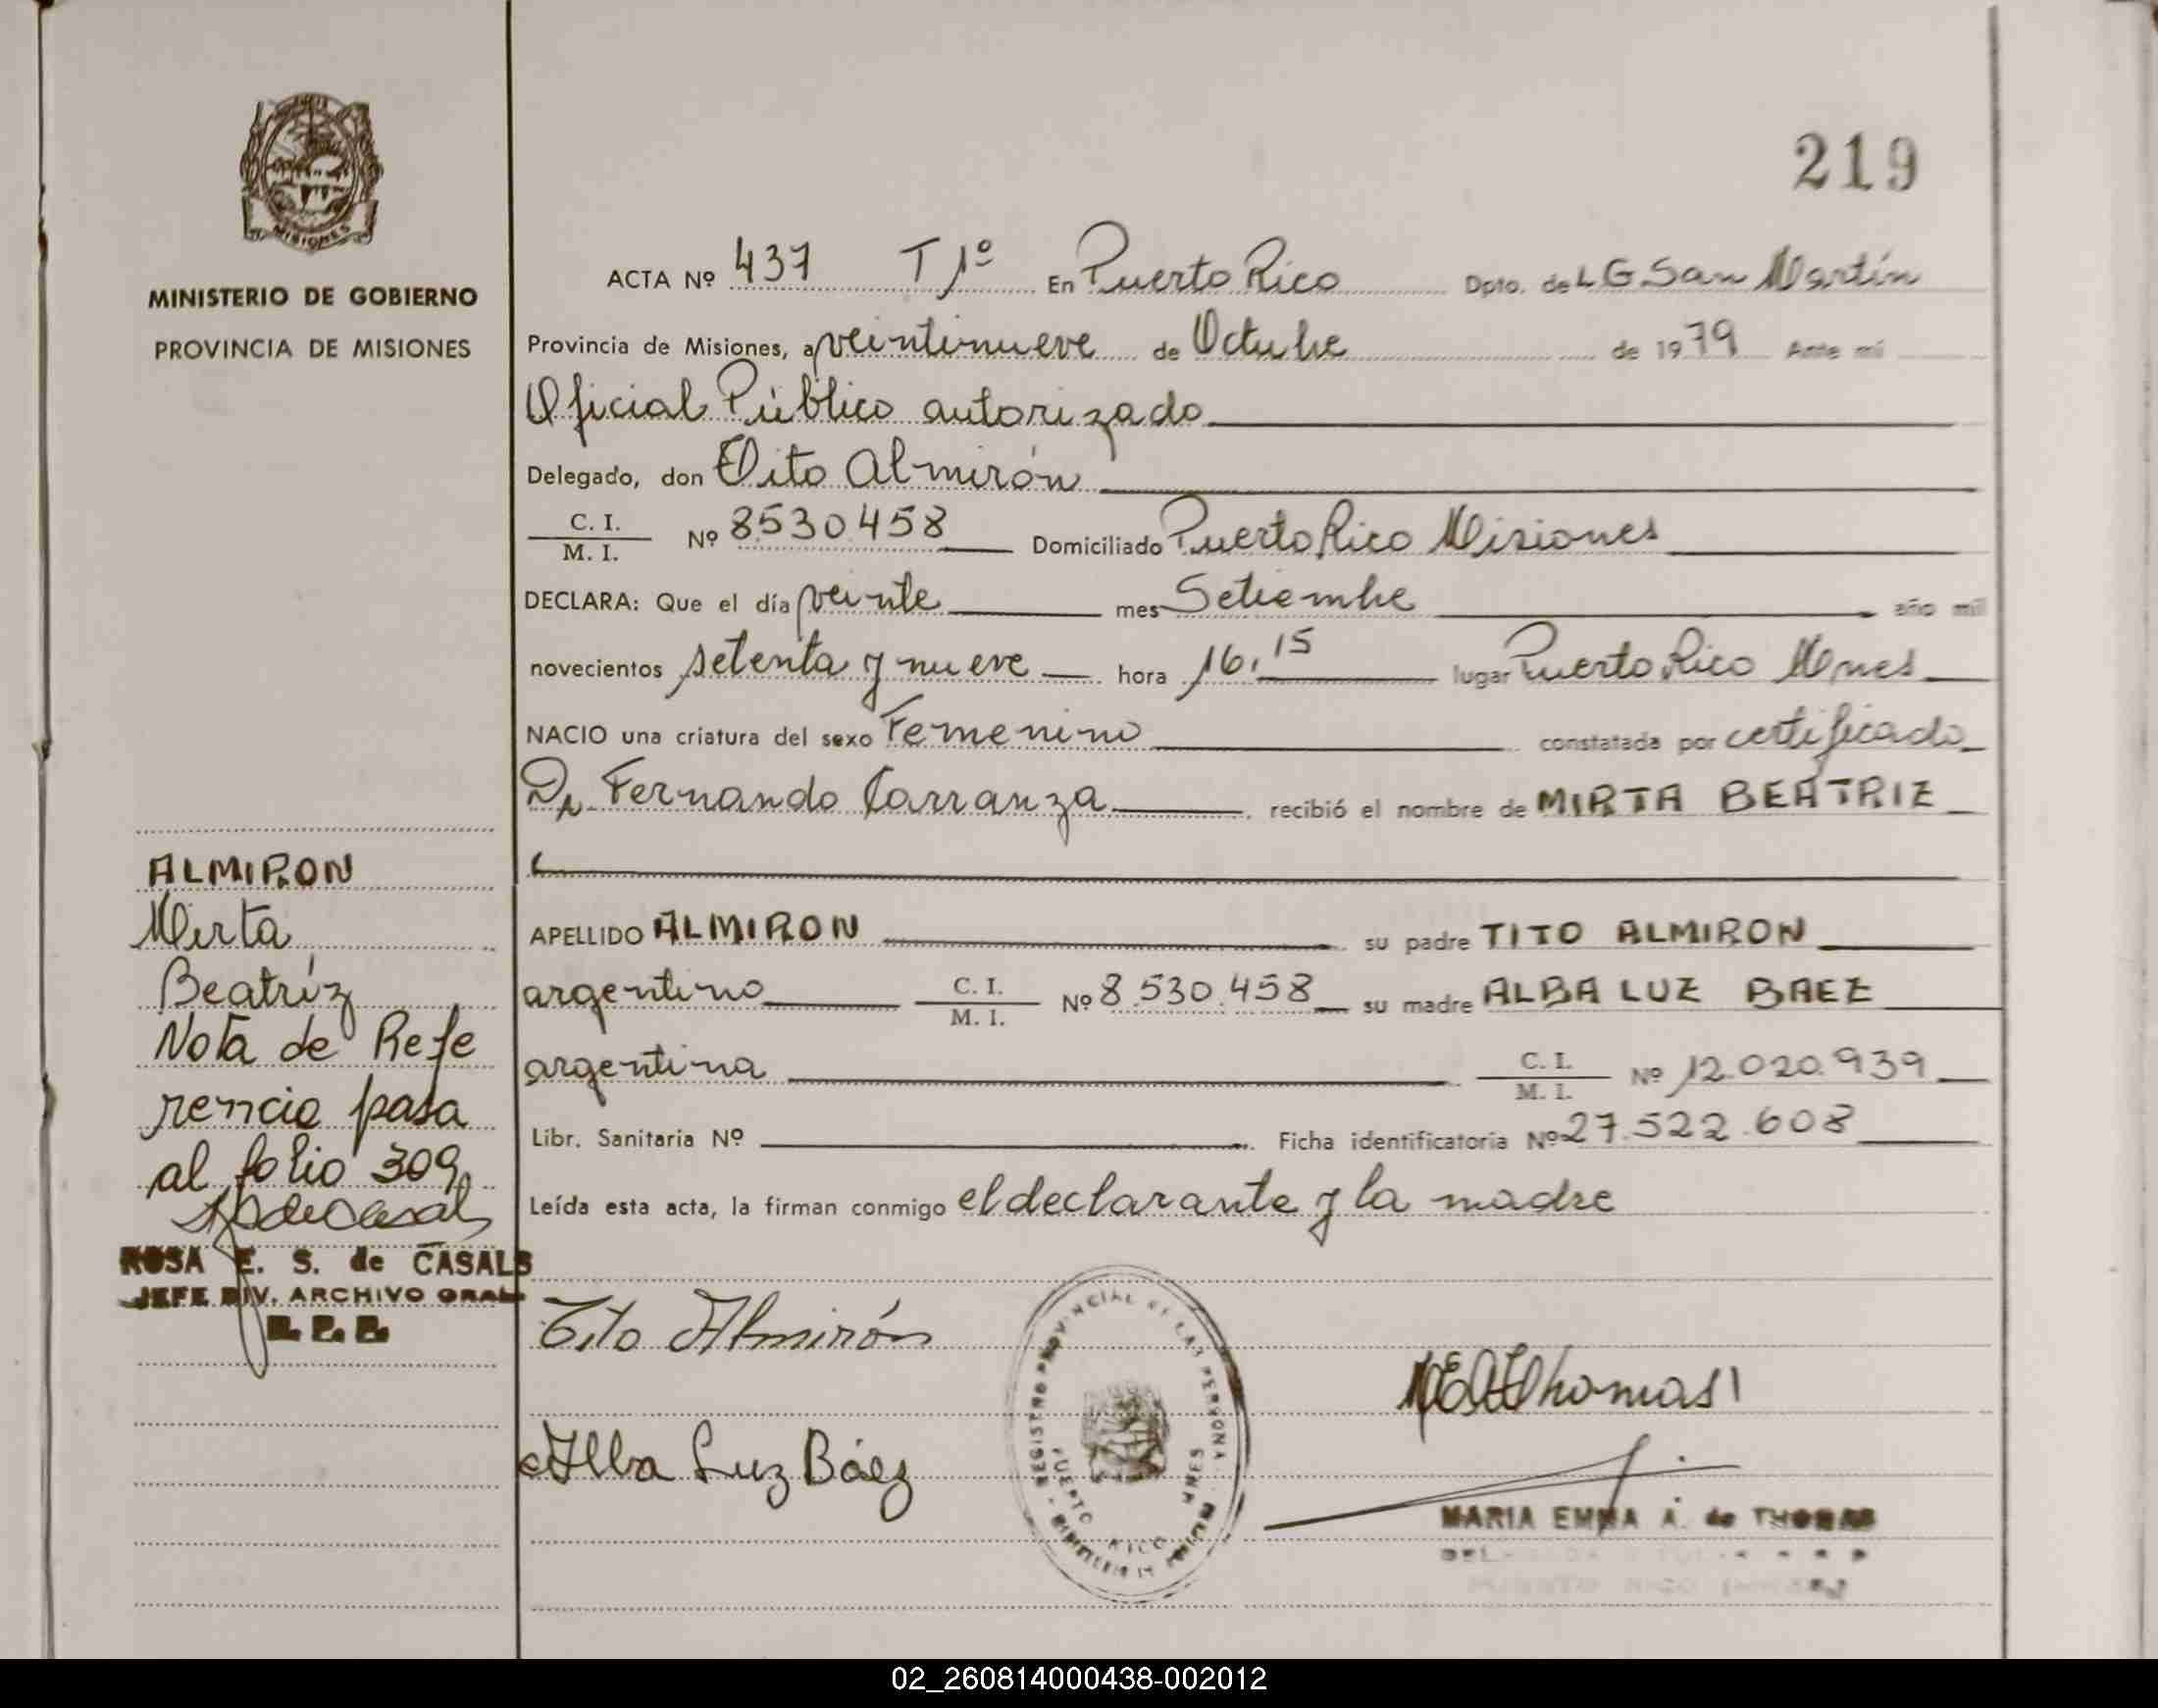 219
MISIONES
MINISTERIO DE GOBIERNO
PROVINCIA DE MISIONES
ACTA Nº 437 T 1º En Puerto Rico Dpto. de L G San Martín
Provincia de Misiones, a veintinueve de Octubre de 1979 Ante mí
Oficial Público autorizado
Delegado, don Tito Almirón
C. I.
M. I. Nº 8530458 Domiciliado Puerto Rico Misiones
DECLARA: Que el día veinte mes Setiembre año mil
novecientos setenta y nueve hora 16,15 lugar Puerto Rico Mnes
NACIO una criatura del sexo Femenino constatada por certificado
Dr Fernando Carranza recibió el nombre de MIRTA BEATRIZ
APELLIDO ALMIRON su padre TITO ALMIRON
argentino C. I.
M. I. Nº 8.530.458 su madre ALBA LUZ BAEZ
argentina C. I.
M. I. Nº 12.020.939
Libr. Sanitaria Nº Ficha identificatoria Nº 27.522.608
Leída esta acta, la firman conmigo el declarante y la madre
ALMIRON
Mirta
Beatríz
Nota de Refe
rencia pasa
al folio 309
ROSA E. S. de CASALS
JEFE DIV. ARCHIVO GRAL
Tito Almirón
Alba Luz Báez
REGISTRO PROVINCIAL DE LAS PERSONAS
PUERTO RICO MNES
MARIA EMMA A. de THOMAS
PUERTO RICO
02_260814000438-002012